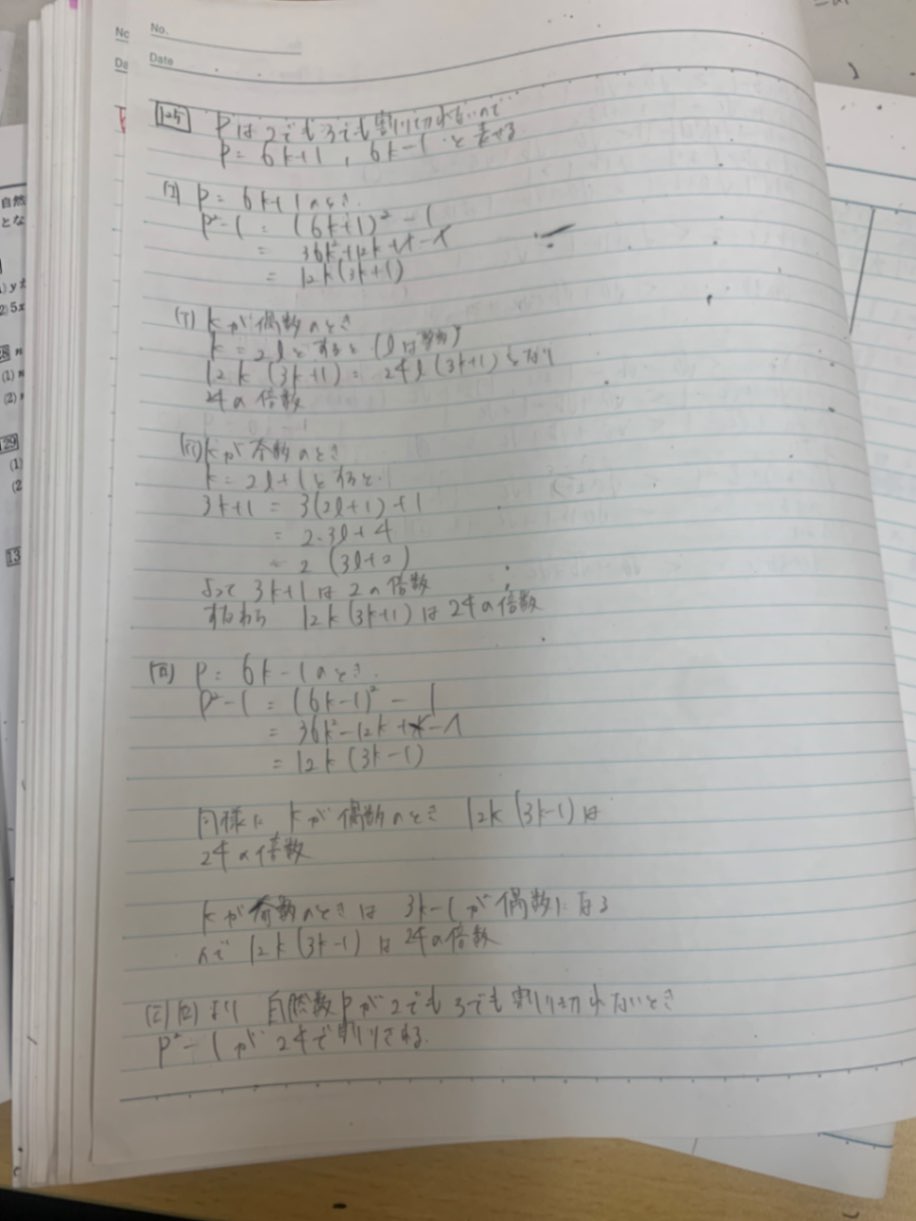 No.
Date
No.
Da
125 Pは2でも3でも割り切れないので
P = 6k+1 , 6k-1 と表せる
(I) P = 6k+1のとき.
P²-1 = (6k+1)² - 1
= 36k²+12k+1-1
= 12k(3k+1)
(i) kが偶数のとき
k = 2lとすると (lは整数)
12k (3k+1) = 24l(3k+1)となり
24の倍数
(ii) kが奇数のとき
k = 2l+1とすると.
3k+1 = 3(2l+1)+1
= 2・3l+4
= 2 (3l+2)
よって 3k+1は2の倍数
すなわち 12k(3k+1)は24の倍数
(II) P = 6k-1のとき.
P²-1 = (6k-1)² - 1
= 36k²-12k+1-1
= 12k(3k-1)
同様に kが偶数のとき 12k(3k-1)は
24の倍数
kが奇数のときは 3k-1が偶数になる
ので 12k(3k-1)は24の倍数
(I)(II)より 自然数Pが2でも3でも割り切れないとき
P²-1が24で割りきれる.
自然
とな
5x
(1)
(2)
29
(1)
(2
13